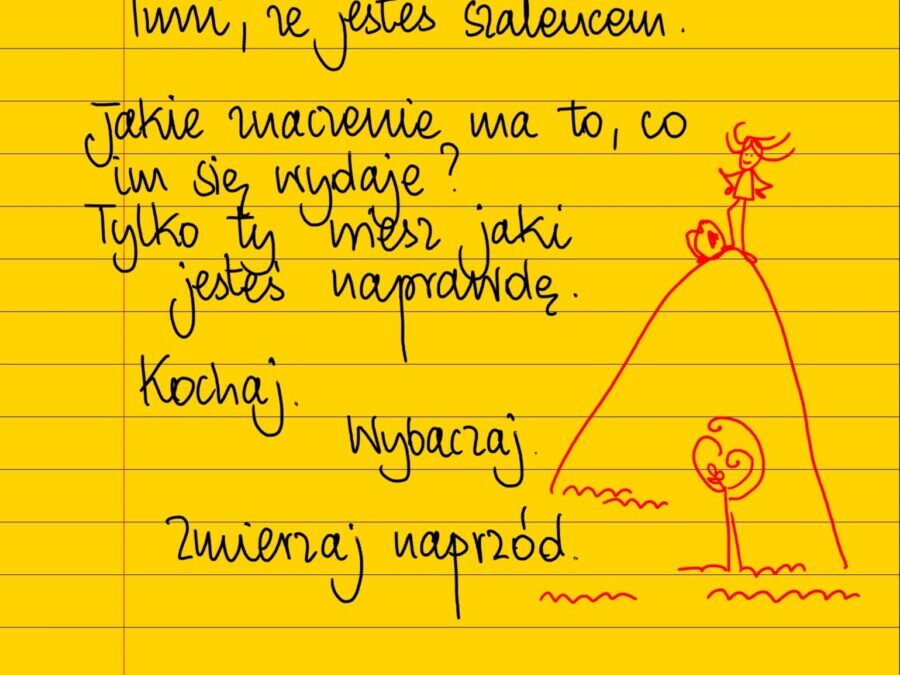 Inni, że jesteś szaleńcem.
Jakie znaczenie ma to, co
im się wydaje?
Tylko ty wiesz jaki
jesteś naprawdę.
Kochaj.
Wybaczaj.
Zmierzaj naprzód.